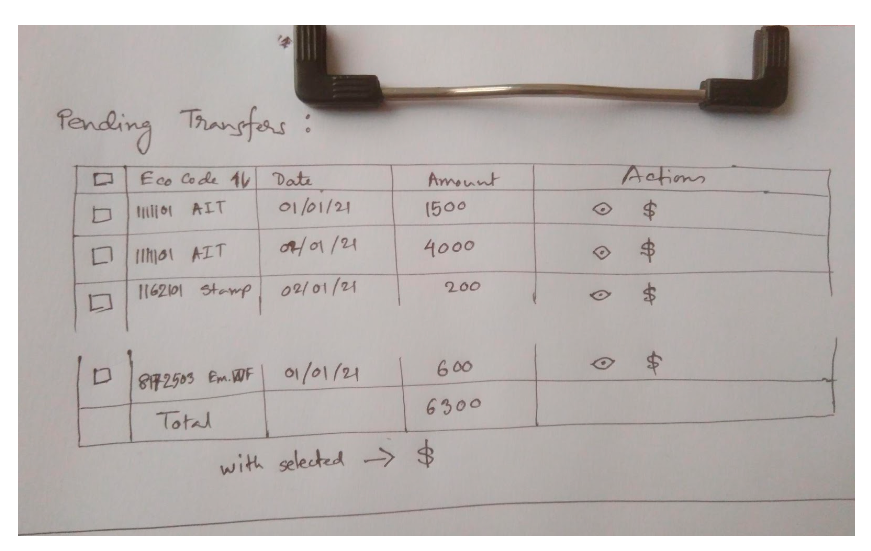 Pending Transfers :
Eco Code ↑↓ Date Amount Actions
1111101 AIT 01/01/21 1500 $
1111101 AIT 02/01/21 4000 $
1162101 Stamp 02/01/21 200 $
8172503 Em. WF 01/01/21 600 $
Total 6300
with selected → $